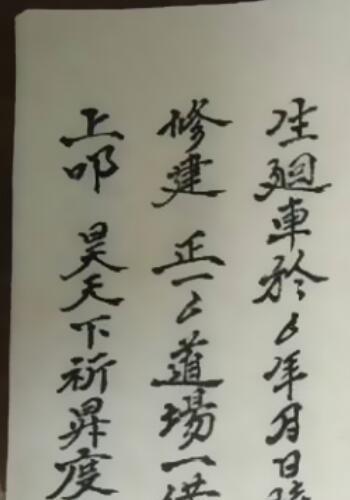 廻車於厶年月日
修建 正一厶道場一
上叩 昊天下祈昇度